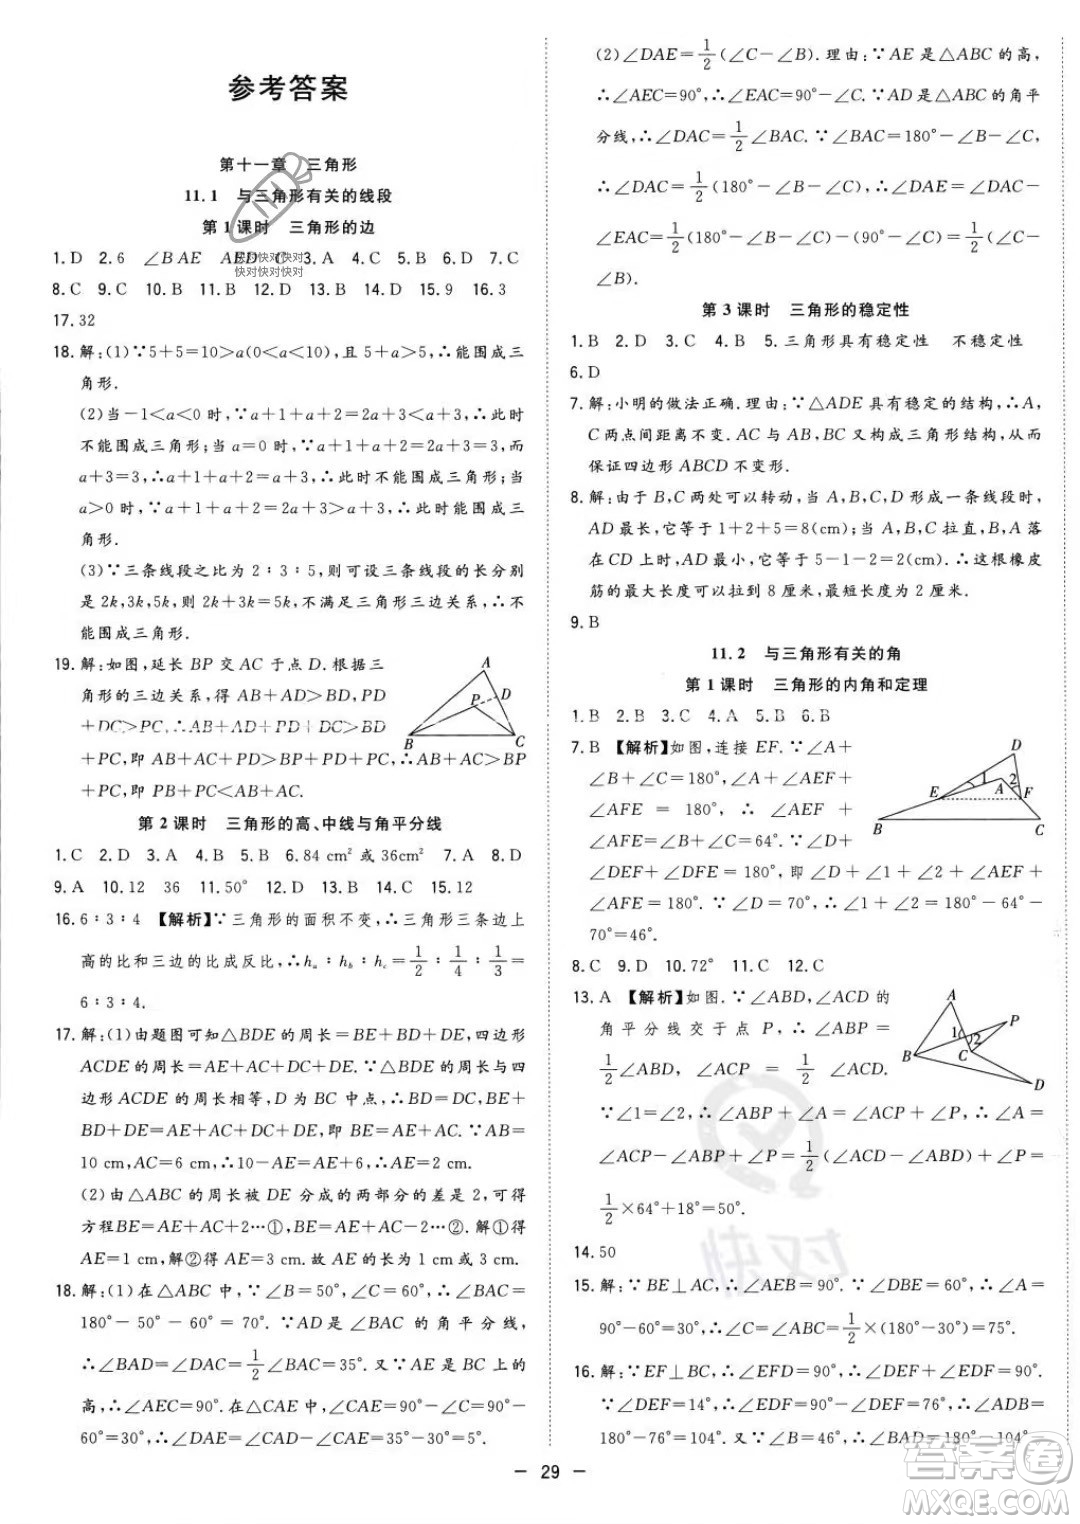 参考答案
第十一章 三角形
11.1 与三角形有关的线段
第1课时 三角形的边
1.D 2.6 ∠BAE AED C 3.A 4.C 5.B 6.D 7.C
快对快对快对
快对快对快对
8.C 9.C 10.C 11.C 12.C 13.A 14.D 15.9 16.3
17.32
18.解:(1)∵5+5=10>a(0<a<10),且5+a>5,∴能围成三
角形.
(2)当-1<a<0时,∵a+1+a+2=2a+3<a+3,∴此时
不能围成三角形;当a=0时,∵a+1+a+2=2a+3=3,
a+3=3,∴a+1+a+2=a+3,∴此时不能围成三角形;当
a>0时,∵a+1+a+2=2a+3>a+3,∴此时能围成三角
形.
(3)∵三条线段之比为2∶3∶5,则可设三条线段的长分别
是2k,3k,5k,则2k+3k=5k,不满足三角形三边关系,∴不
能围成三角形.
19.解:如图,延长BP交AC于点D.根据三
角形的三边关系,得AB+AD>BD,PD
+DC>PC,∴AB+AD+PD+DC>BD
+PC,即AB+AC+PD>AC... 
A
P
D
B
C
+PC,即PB+PC<AB+AC.
第2课时 三角形的高、中线与角平分线
1.C 2.D 3.A 4.B 5.B 6.84 cm²或36cm² 7.A 8.D
9.A 10.12 36 11.50° 12.B 13.B 14.C 15.12
16.6∶3∶4 【解析】∵三角形的面积不变,∴三角形三条边上
高的比和三边的比成反比,∴hₐ∶h_b∶h_c=1/2∶1/4∶1/3=
6∶3∶4.
17.解:(1)由题图可知△BDE的周长=BE+BD+DE,四边形
ACDE的周长=AE+AC+DC+DE.∵△BDE的周长与四
边形ACDE的周长相等,D为BC中点,∴BD=DC,BE+
BD+DE=AE+AC+DC+DE,即BE=AE+AC.∵AB=
10 cm,AC=6 cm,∴10-AE=AE+6,∴AE=2 cm.
(2)由△ABC的周长被DE分成的两部分的差是2,可得
方程BE=AE+AC+2…①或BE=AE+AC-2…②.解①得
AE=1 cm,解②得AE=3 cm.故AE的长为1 cm或3 cm.
18.解:(1)在△ABC中,∵∠B=50°,∠C=60°,∴∠BAC=
180°-50°-60°=70°.∵AD是∠BAC的角平分线,
∴∠BAD=∠DAC=1/2∠BAC=35°.又∵AE是BC上的
高,∴∠AEC=90°.在△CAE中,∠CAE=90°-∠C=90°-
60°=30°,∴∠DAE=∠CAD-∠CAE=35°-30°=5°.
(2)∠DAE=1/2(∠C-∠B).理由:∵AE是△ABC的高,
∴∠AEC=90°,∴∠EAC=90°-∠C.∵AD是△ABC的角平
分线,∴∠DAC=1/2∠BAC.∵∠BAC=180°-∠B-∠C,
∴∠DAC=1/2(180°-∠B-∠C),∴∠DAE=∠DAC-
∠EAC=1/2(180°-∠B-∠C)-(90°-∠C)=1/2(∠C-∠B).
第3课时 三角形的稳定性
1.B 2.D 3.C 4.B 5.三角形具有稳定性 不稳定性
6.D
7.解:小明的做法正确.理由:∵△ADE具有稳定的结构,∴A,
C两点间距离不变.AC与AB,BC又构成三角形结构,从而
保证四边形ABCD不变形.
8.解:由于B,C两处可以转动,当A,B,C,D形成一条线段时,
AD最长,它等于1+2+5=8(cm);当A,B,C拉直,B,A落
在CD上时,AD最小,它等于5-1-2=2(cm).∴这根橡皮
筋的最大长度可以拉到8厘米,最短长度为2厘米.
9.B
11.2 与三角形有关的角
第1课时 三角形的内角和定理
1.B 2.B 3.C 4.A 5.B 6.B
7.B 【解析】如图,连接EF.∵∠A+
∠B+∠C=180°,∠A+∠AEF+
∠AFE=180°,∴∠AEF+
∠AFE=∠B+∠C=64°.∵∠D+
∠DEF+∠DFE=180°,即∠D+∠1+∠2+∠AEF+
∠AFE=180°.∵∠D=70°,∴∠1+∠2=180°-64°-
70°=46°.
D
1
2
E
A
F
B
C
8.C 9.D 10.72° 11.C 12.C
13.A 【解析】如图.∵∠ABD,∠ACD的
角平分线交于点P,∴∠ABP=
1/2∠ABD,∠ACP=1/2∠ACD.
A
P
1
2
B
C
D
∵∠1=∠2,∴∠A+∠ABP=∠P+∠ACP,∴∠A=
∠ACP-∠ABP+∠P=1/2(∠ACD-∠ABD)+∠P=
1/2×64°+18°=50°.
14.50
15.解:∵BE⊥AC,∴∠AEB=90°.∵∠DBE=60°,∴∠A=
90°-60°=30°,∴∠C=∠ABC=1/2×(180°-30°)=75°.
16.解:∵EF⊥BC,∴∠EFD=90°,∴∠DEF+∠EDF=90°.
∵∠DEF=14°,∴∠EDF=90°-∠DEF=76°,∴∠ADB=
180°-76°=104°.又∵∠B=46°,∴∠BAD=180°-104°-
- 29 -
答案圈
MXQE.COM